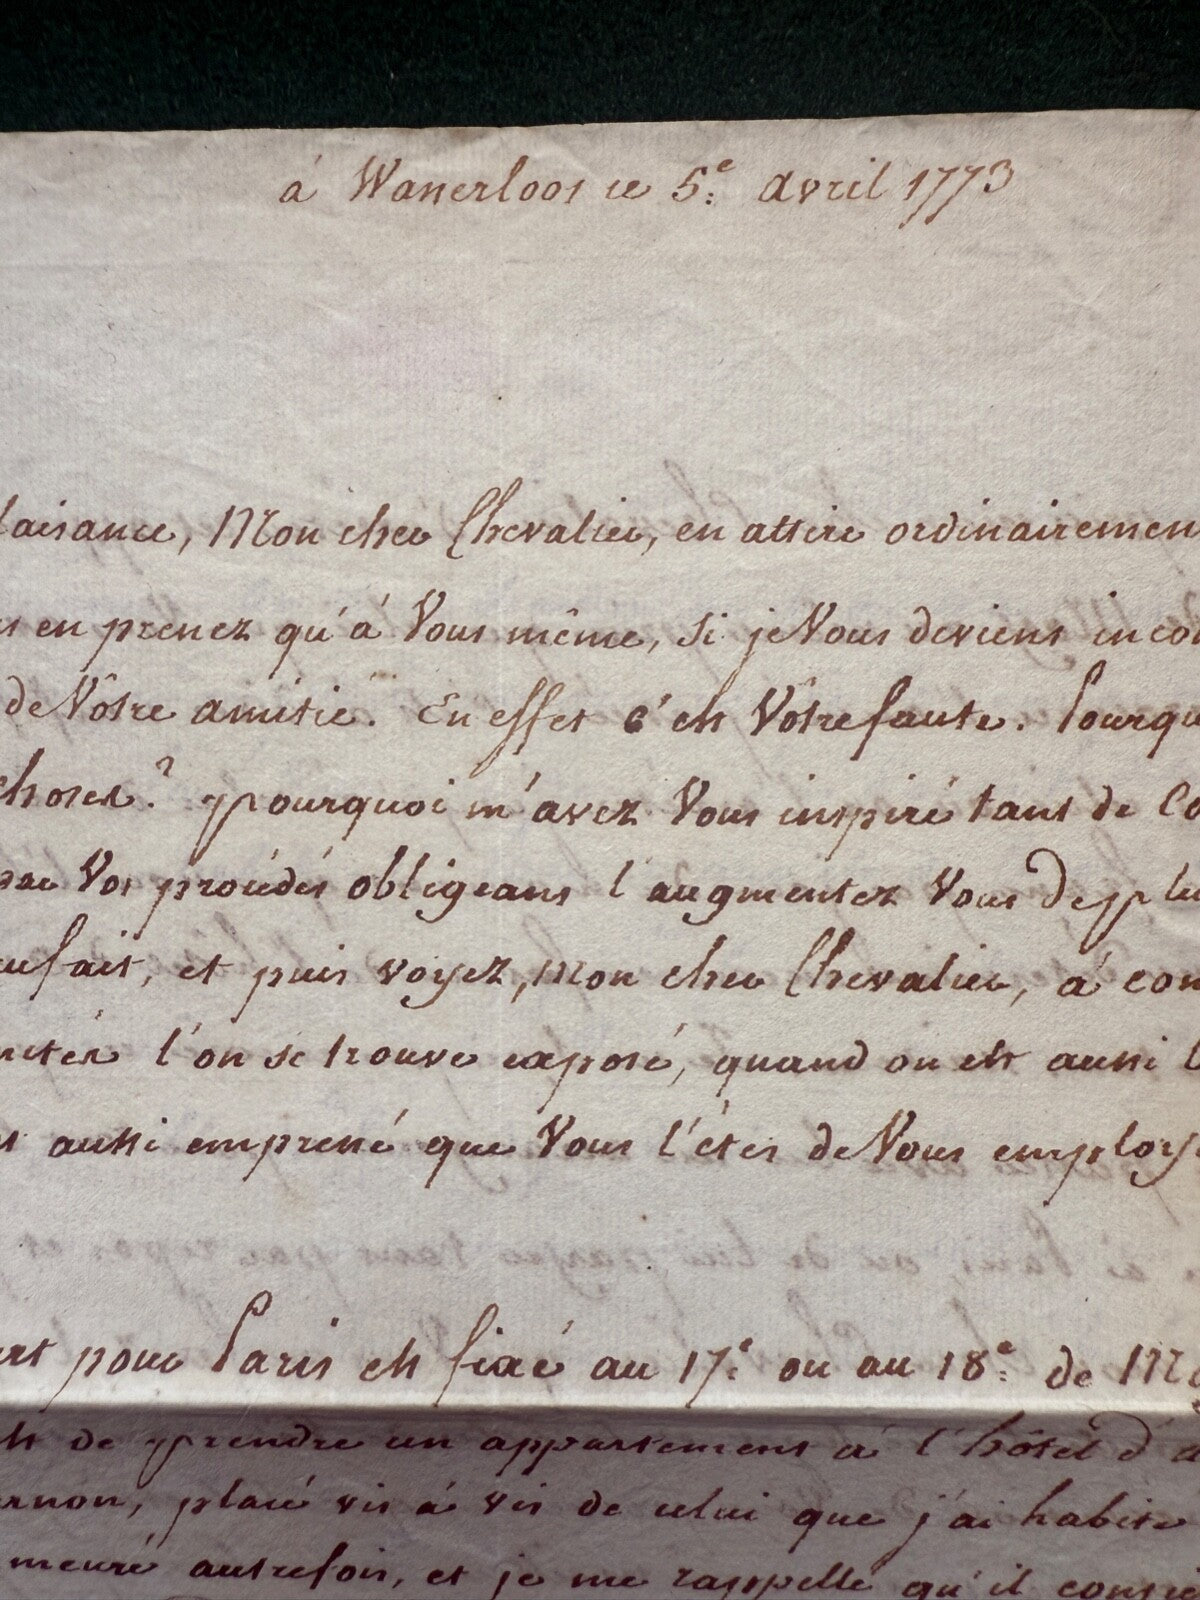 á Wanerloos ce 5.e avril 1773
laisance, Mon cher Chevalier, en attire ordinairemen
en prenez qu'á Vous même, si je Vous deviens incom
de Vôtre amitié. En effet c'est Vôtre faute. Pourqu
choses? pourquoi m'avez Vous inspiré tant de Co
par Vos procédés obligeans l'augmentez Vous de plu
fait, et puis voyez, Mon cher Chevalier, á com
l'on se trouve exposé, quand on est aussi
aussi empressé que Vous l'étes de Vous employe
pour Paris est fixé au 17.e ou au 18.e de M
de prendre un appartement á l'hôtel d'
rnon, placé vis á vis de celui que j'ai habité
meuré autrefois, et je me rappelle qu'il